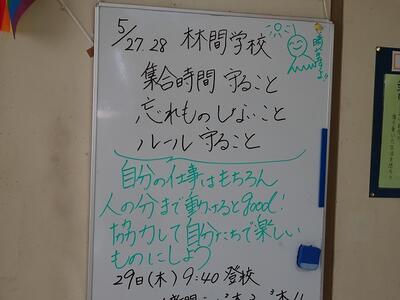 5/27.28 林間学校
集合時間 守ること
忘れものしないこと
ルール 守ること
自分の仕事はもちろん
人の分まで動けるとgood!
協力して自分たちで楽しい
ものにしよう
29日(木) 9:40 登校